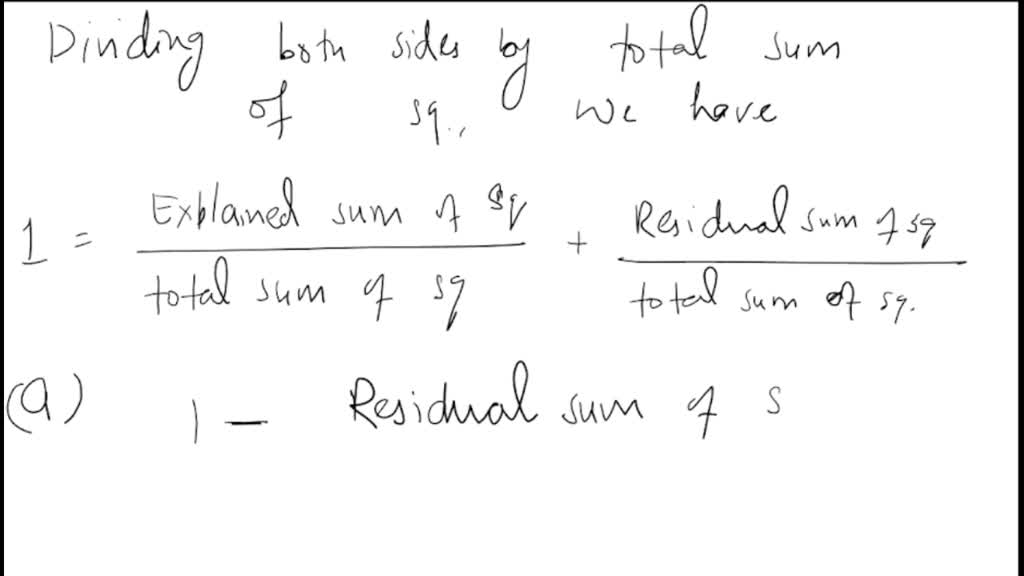 Dividing both sides by total sum
of sq., we have
1 = Explained sum of sq / total sum of sq + Residual sum of sq / total sum of sq.
(a) 1 — Residual sum of s